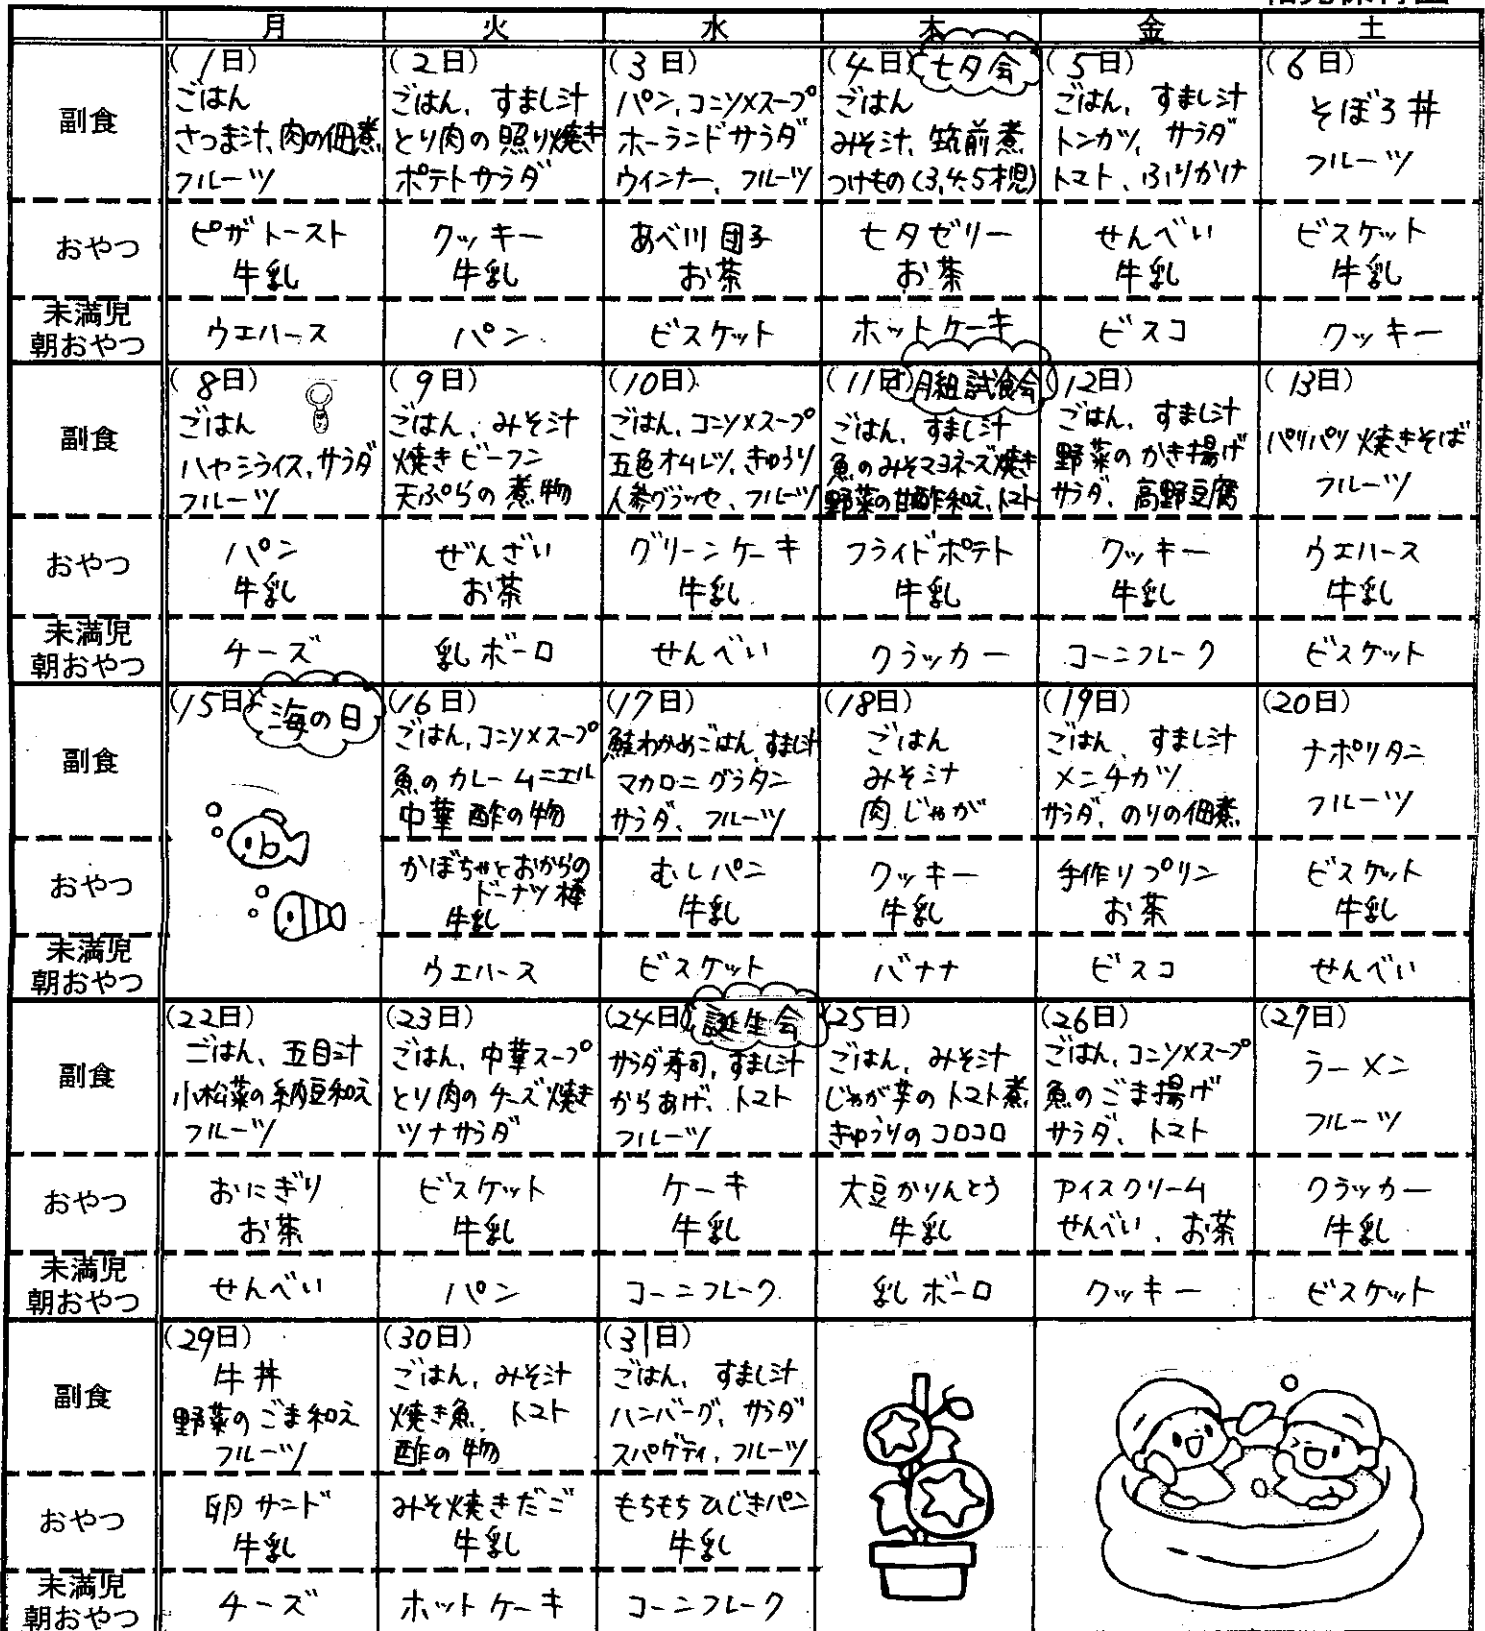 月 火 水 木 金 土
副食
(1日)
ごはん
さつま汁、肉の佃煮
フルーツ
(2日)
ごはん、すまし汁
とり肉の照り焼き
ポテトサラダ
(3日)
パン、コンソメスープ
ホーランドサラダ
ウインナー、フルーツ
(4日) 七夕会
ごはん
みそ汁、筑前煮
つけもの(3,4,5才児)
(5日)
ごはん、すまし汁
トンカツ、サラダ
トマト、ふりかけ
(6日)
そぼろ丼
フルーツ
おやつ
ピザトースト
牛乳
クッキー
牛乳
あべ川団子
お茶
七夕ゼリー
お茶
せんべい
牛乳
ビスケット
牛乳
未満児
朝おやつ
ウエハース
パン
ビスケット
ホットケーキ
ビスコ
クッキー
副食
(8日)
ごはん
ハヤシライス、サラダ
フルーツ
(9日)
ごはん、みそ汁
焼きビーフン
天ぷらの煮物
(10日)
ごはん、コンソメスープ
五色オムレツ、きゅうり
人参グラッセ、フルーツ
(11日) 月組試食会
ごはん、すまし汁
魚のみそマヨネーズ焼き
野菜の甘酢和え、トマト
12日)
ごはん、すまし汁
野菜のかき揚げ
サラダ、高野豆腐
(13日)
パリパリ焼きそば
フルーツ
おやつ
パン
牛乳
ぜんざい
お茶
グリーンケーキ
牛乳
フライドポテト
牛乳
クッキー
牛乳
ウエハース
牛乳
未満児
朝おやつ
チーズ
乳ボーロ
せんべい
クラッカー
コーンフレーク
ビスケット
副食
(15日) 海の日
(16日)
ごはん、コンソメスープ
魚のカレームニエル
中華酢の物
(17日)
鮭わかめごはん、すまし汁
マカロニグラタン
サラダ、フルーツ
(18日)
ごはん
みそ汁
肉じゃが
(19日)
ごはん、すまし汁
メンチカツ
サラダ、のりの佃煮
(20日)
ナポリタン
フルーツ
おやつ
かぼちゃとおからの
ドーナツ棒
牛乳
むしパン
牛乳
クッキー
牛乳
手作りプリン
お茶
ビスケット
牛乳
未満児
朝おやつ
ウエハース
ビスケット
バナナ
ビスコ
せんべい
副食
(22日)
ごはん、五目汁
小松菜の納豆和え
フルーツ
(23日)
ごはん、中華スープ
とり肉のチーズ焼き
ツナサラダ
(24日) 誕生会
サラダ寿司、すまし汁
からあげ、トマト
フルーツ
(25日)
ごはん、みそ汁
じゃが芋のトマト煮
きゅうりのコロコロ
(26日)
ごはん、コンソメスープ
魚のごま揚げ
サラダ、トマト
(27日)
ラーメン
フルーツ
おやつ
おにぎり
お茶
ビスケット
牛乳
ケーキ
牛乳
大豆かりんとう
牛乳
アイスクリーム
せんべい、お茶
クラッカー
牛乳
未満児
朝おやつ
せんべい
パン
コーンフレーク
乳ボーロ
クッキー
ビスケット
副食
(29日)
牛丼
野菜のごま和え
フルーツ
(30日)
ごはん、みそ汁
焼き魚、トマト
酢の物
(31日)
ごはん、すまし汁
ハンバーグ、サラダ
スパゲティ、フルーツ
おやつ
卵サンド
牛乳
みそ焼きだご
牛乳
もちもちひじきパン
牛乳
未満児
朝おやつ
チーズ
ホットケーキ
コーンフレーク